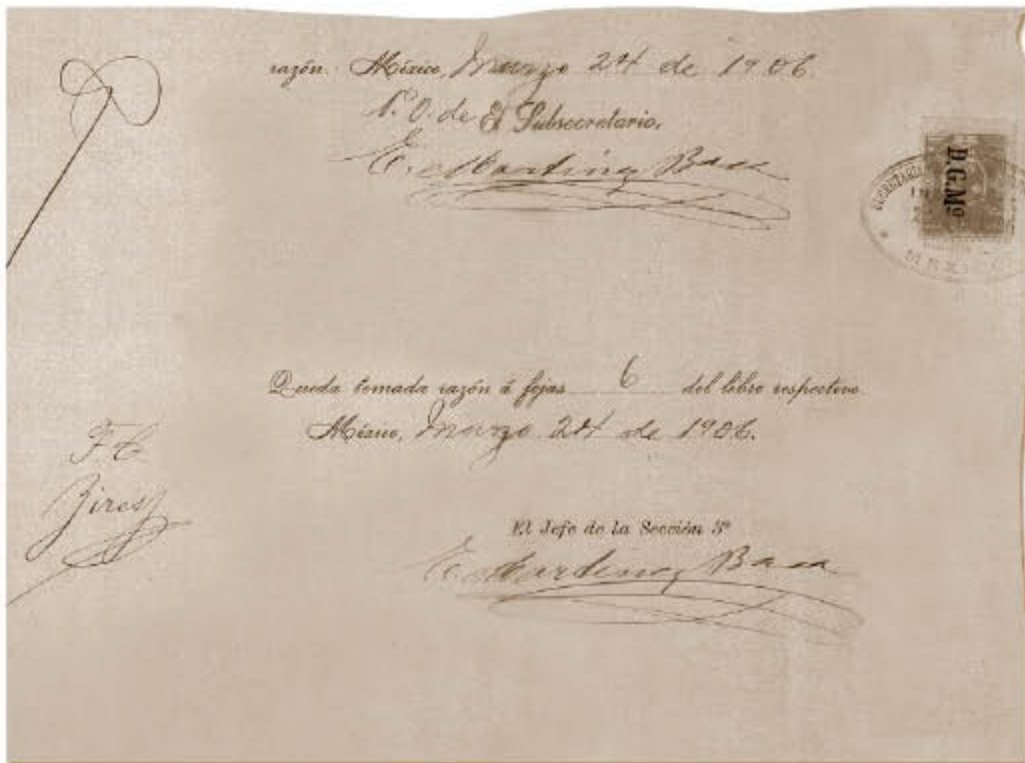 razón. México, Marzo 24 de 1906.
P. O. de El Subsecretario,
E. Martinez Baca
D.G.Mº
Queda tomada razón á fojas 6 del libro respectivo
México, Marzo 24 de 1906.
El Jefe de la Sección 3ª
E. Martinez Baca